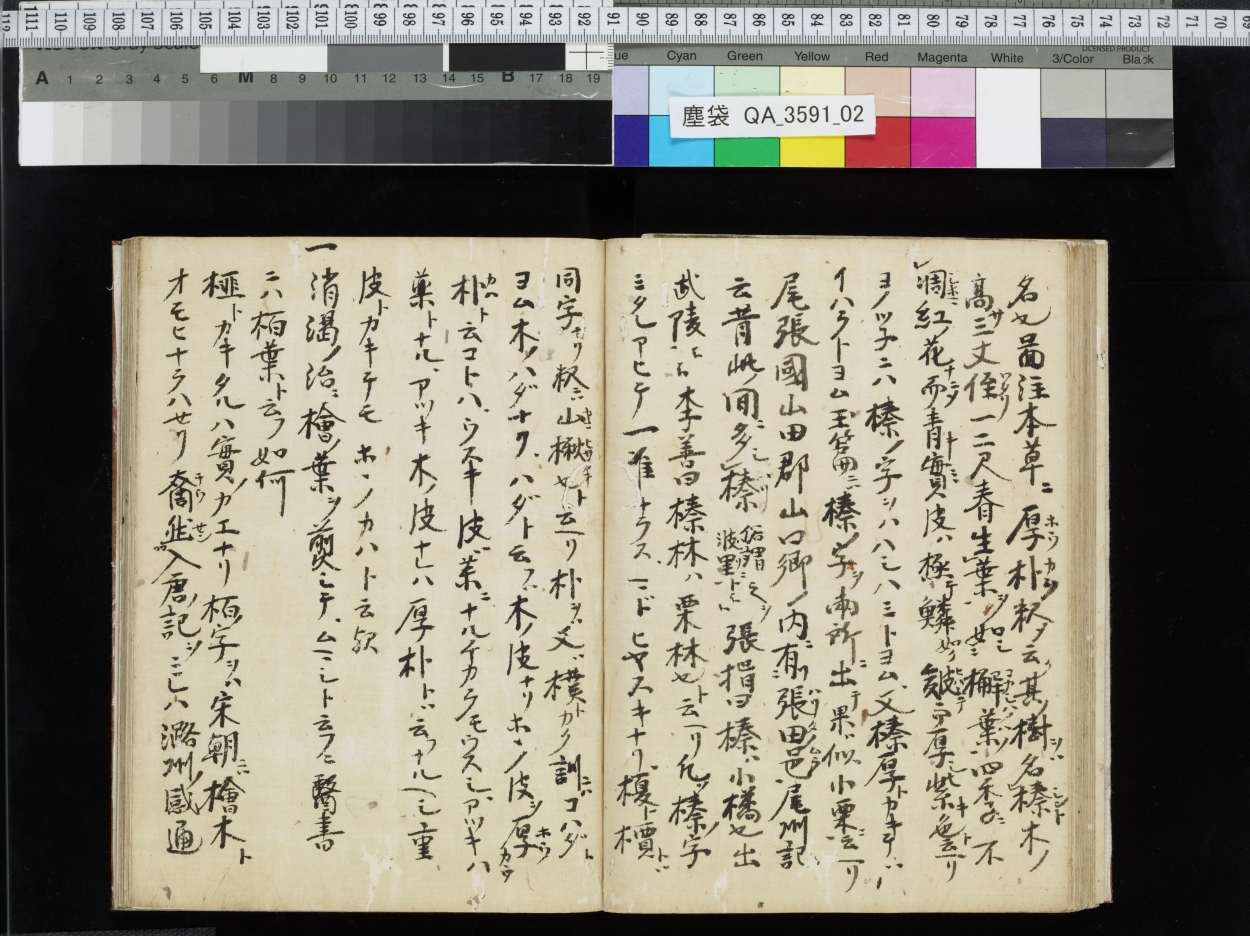 塵袋 QA_3591_02
Cyan Green Yellow Red Magenta White 3/Color Black
LICENSED PRODUCT
A 1 2 3 4 5 6 M 8 9 10 11 12 13 14 15 B 17 18 19
名也圖注本草ニ厚朴釈タ云其樹名榛木ノ
高サ三丈径一二尺春生葉如槲葉四季不
凋紅花而青實皮ハ極テ鱗皺而厚紫色云ヘリ
ヨノツ子ニハ榛ノ字ヲハハシハミトヨム又榛厚トカキテハ
イハラトヨム玉篇ニ榛ノ字ヲ南所ニ出テ果似小栗云ヘリ
尾張國山田郡山口郷ノ内ニ有張田邑尾州記
云昔此間多榛 俗謂之波里 張指曰榛ハ小橘也出
武陵 李善曰榛林ハ栗林也ト云ヘリ凡ソ榛ノ字
ミタレアヒテ一准ナラスマドヒヤスキナリ榎ト檟トハ
同字ナリ釈ニハ山楸也ト云ヘリ朴ヲハ又横トカク訓ニハコハダト
ヨム木ノハダナリハダト云フハ木ノ皮ナリホウノ皮ヲ厚
朴ト云コトハウスキ皮ハ薬ニナルチカラモウスシアツキハ
薬トナルアツキ木ノ皮ナレハ厚朴トハ云フナルヘシ重
皮トカキテモホウノカハト云歟
一消渇ノ治ニ檜ノ葉ヲ煎シテムヘシト云フニ醫書
ニハ栢葉ト云フ如何
榧トカキタルハ實ノカエナリ栢字ヲハ宋朝ニハ檜木ト
オモヒナラハセリ奝然入唐ノ記ヲミレハ潞州ノ感通